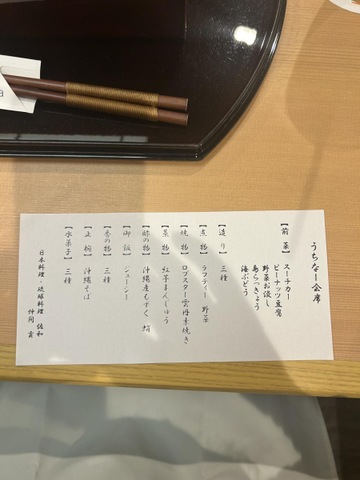 うちなー会席
【前 菜】 スーチカー
ピーナッツ豆腐
野菜お浸し
あらっきょう
海ぶどう
【造 り】 三種
【煮 物】 ラフティー 野菜
【焼 物】 ロブスター雲丹素焼き
【蒸 物】 紅芋まんじゅう
【酢の物】 沖縄産もずく 蛸
【御 飯】 ジューシー
【香の物】 三種
【止 椀】 沖縄そば
【水菓子】 三種
日本料理・琉球料理 佐和